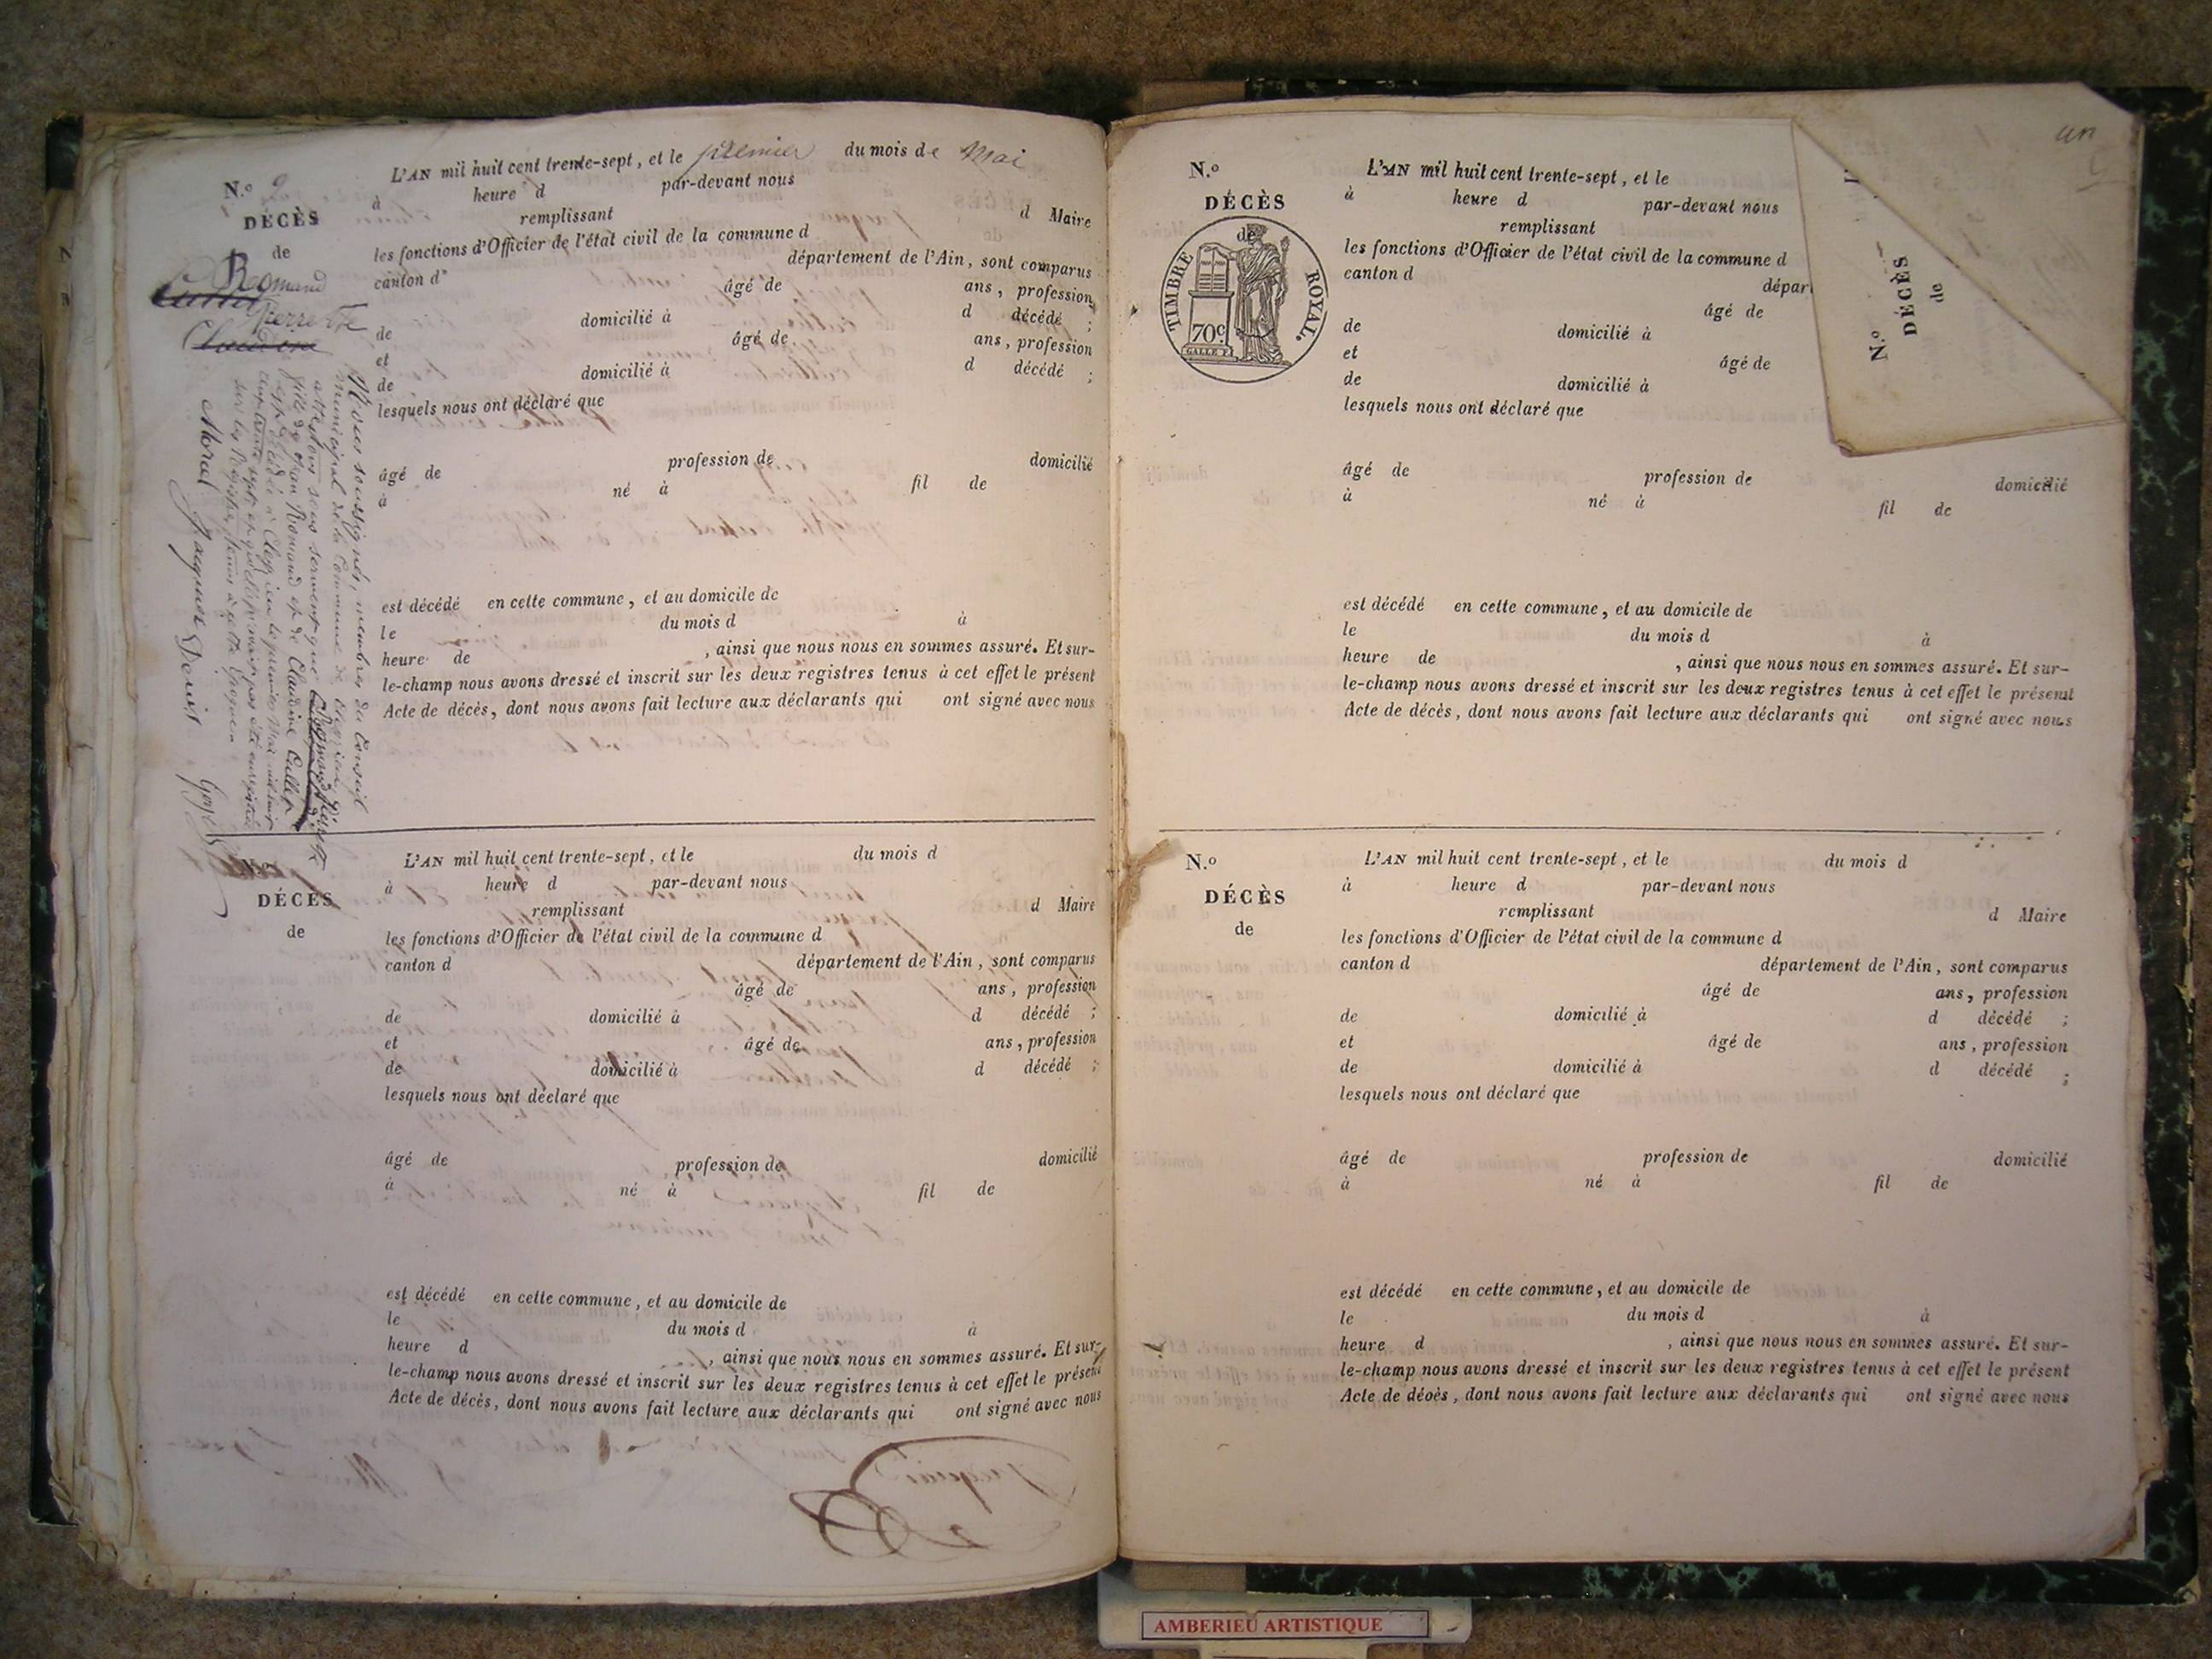 L'AN mil huit cent trente-sept, et le premier du mois de Mai
N.º 2
à heure d par-devant nous
DÉCÈS
remplissant d Maire
de
les fonctions d'Officier de l'état civil de la commune d
Romand
canton d département de l'Ain, sont comparus
Pierrette
âgé de ans, profession
de domicilié à d décédé ;
et âgé de ans, profession
de domicilié à d décédé ;
lesquels nous ont déclaré que
âgé de profession de domicilié
à né à fil de
est décédé en cette commune, et au domicile de
le du mois d à
heure de , ainsi que nous nous en sommes assuré. Et sur-
le-champ nous avons dressé et inscrit sur les deux registres tenus à cet effet le présent
Acte de décès, dont nous avons fait lecture aux déclarants qui ont signé avec nous
Nous soussignés, membres du Conseil
municipal de la Commune de
attestons sous serment que Romand Pierrette
fille de Jean Romand et de Claudine Cullet
est décédée à le premier Mai mil huit
cent trente sept et que le décès n'a pas été enregistré
sur les Registres tenus à cette époque
Moral Jacques Denis
N.º
L'AN mil huit cent trente-sept, et le du mois d
à heure d par-devant nous
DÉCÈS
remplissant d Maire
de
les fonctions d'Officier de l'état civil de la commune d
canton d département de l'Ain, sont comparus
âgé de ans, profession
de domicilié à d décédé ;
et âgé de ans, profession
de domicilié à d décédé ;
lesquels nous ont déclaré que
âgé de profession de domicilié
à né à fil de
est décédé en cette commune, et au domicile de
le du mois d à
heure d , ainsi que nous nous en sommes assuré. Et sur-
le-champ nous avons dressé et inscrit sur les deux registres tenus à cet effet le présent
Acte de décès, dont nous avons fait lecture aux déclarants qui ont signé avec nous
un
N.º
L'AN mil huit cent trente-sept, et le
à heure d par-devant nous
DÉCÈS
remplissant
de
TIMBRE ROYAL.
70c
GALLE F.
les fonctions d'Officier de l'état civil de la commune d
canton d
dépar
âgé de
de domicilié à
et âgé de
de domicilié à
lesquels nous ont déclaré que
N.º
DÉCÈS
de
âgé de profession de domicilié
à né à fil de
est décédé en cette commune, et au domicile de
le du mois d à
heure de , ainsi que nous nous en sommes assuré. Et sur-
le-champ nous avons dressé et inscrit sur les deux registres tenus à cet effet le présent
Acte de décès, dont nous avons fait lecture aux déclarants qui ont signé avec nous
N.º
L'AN mil huit cent trente-sept, et le du mois d
à heure d par-devant nous
DÉCÈS
remplissant d Maire
de
les fonctions d'Officier de l'état civil de la commune d
canton d département de l'Ain, sont comparus
âgé de ans, profession
de domicilié à d décédé ;
et âgé de ans, profession
de domicilié à d décédé ;
lesquels nous ont déclaré que
âgé de profession de domicilié
à né à fil de
est décédé en cette commune, et au domicile de
le du mois d à
heure d , ainsi que nous nous en sommes assuré. Et sur-
le-champ nous avons dressé et inscrit sur les deux registres tenus à cet effet le présent
Acte de déoès, dont nous avons fait lecture aux déclarants qui ont signé avec nous
AMBERIEU ARTISTIQUE